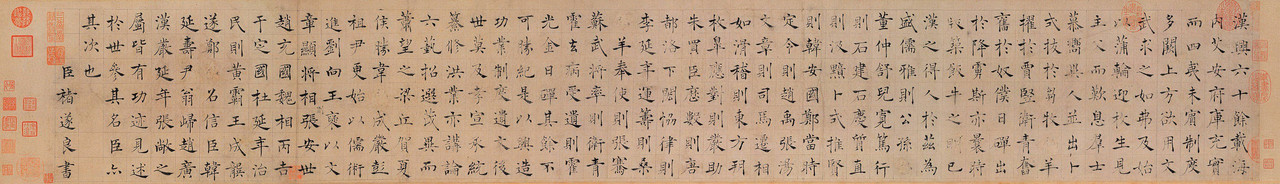 漢興六十餘載海
內艾安府庫充實
而四夷未賓制度
多闕上方欲用文
武求之如弗及始
以蒲輪迎枚生見
主父而歎息群士
慕嚮異人並出卜
式拔於芻牧 羊
擢於賈豎衛青奮
奮於奴僕日磾出
於降虜斯亦曩時
版築飯牛之朋已
漢之得人於茲為
盛儒雅則公孫
董仲舒兒寬篤行
則石建石慶質直
則汲黯卜式推賢
則韓安國鄭當時
定令則趙禹張湯
文章則司馬遷相
如滑稽則東方朔
枚皋應對則嚴助
朱買臣曆數則唐
都洛下閎協律則
李延年運籌則桑
羊奉使則張騫
蘇武將率則衛青
霍去病受遺則霍
光金日磾其餘不
可勝紀是以興造
功業制度遺文後
世莫及孝宣承統
纂修洪業亦講論
六藝招選茂異而
蕭望之梁丘賀夏
侯勝韋 成嚴彭
祖尹更始以儒術
進劉向王褒以文
章顯將相張安世
趙充國魏相丙吉
于定國杜延年治
民則黃霸王成龔
遂鄭 召信臣韓
延壽尹翁歸趙廣
漢嚴延年張敞之
屬皆有功迹見述
於世參其名臣亦
其次也
臣褚遂良書